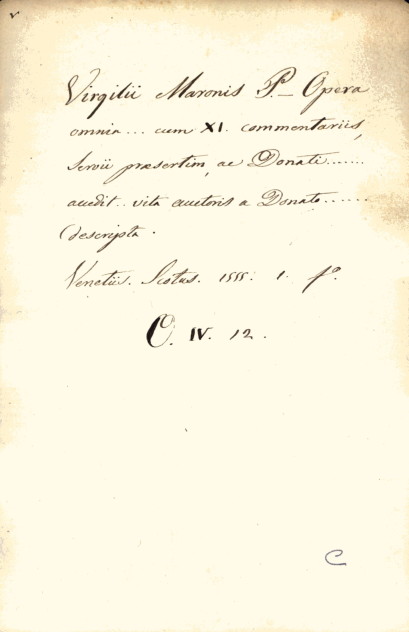 Virgilii Maronis P.– Opera
omnia... cum XI. commentariis,
Servii præsertim, ac Donati.......
accedit.. vita auctoris a Donato.......
descripta.
Venetiis. Scotus. 1555. 1. fº.
O. IV. 12.
C